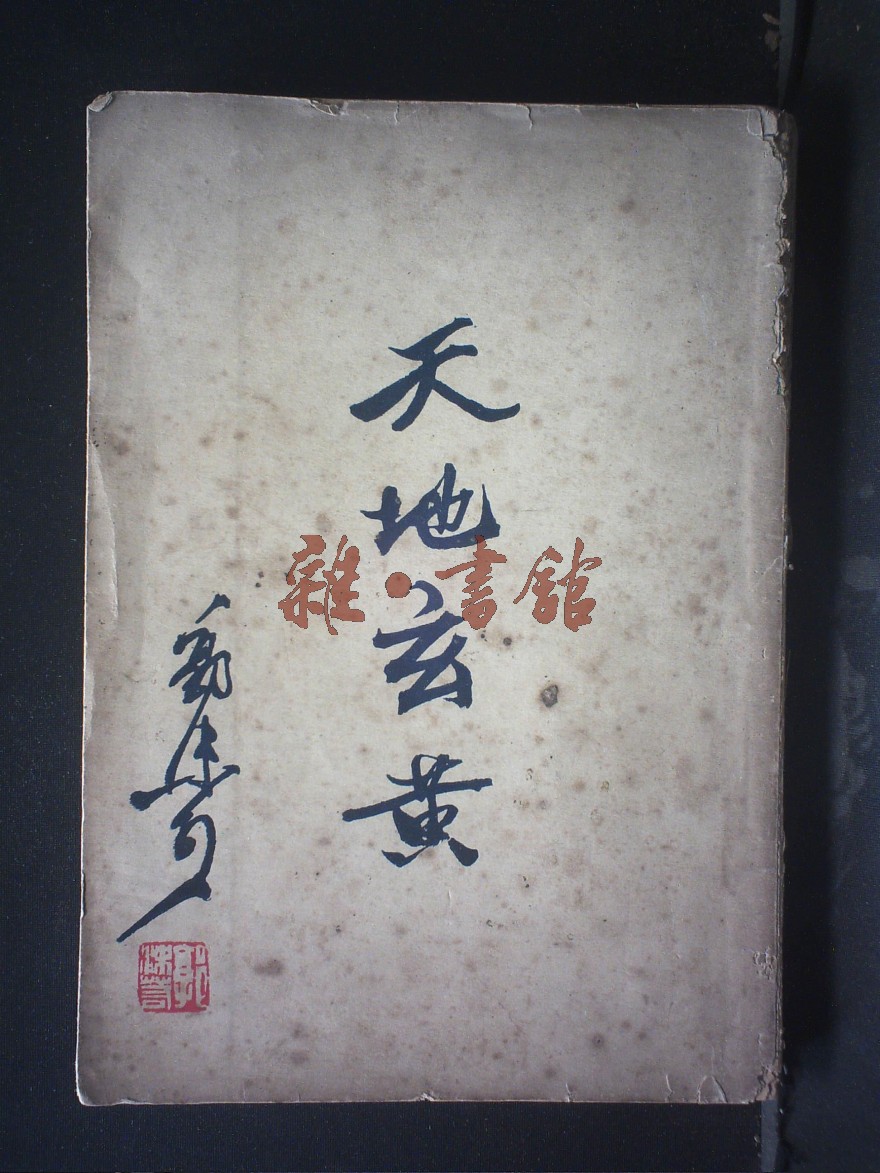 天地玄黄
郭沫若
郭沫若
雜·書館